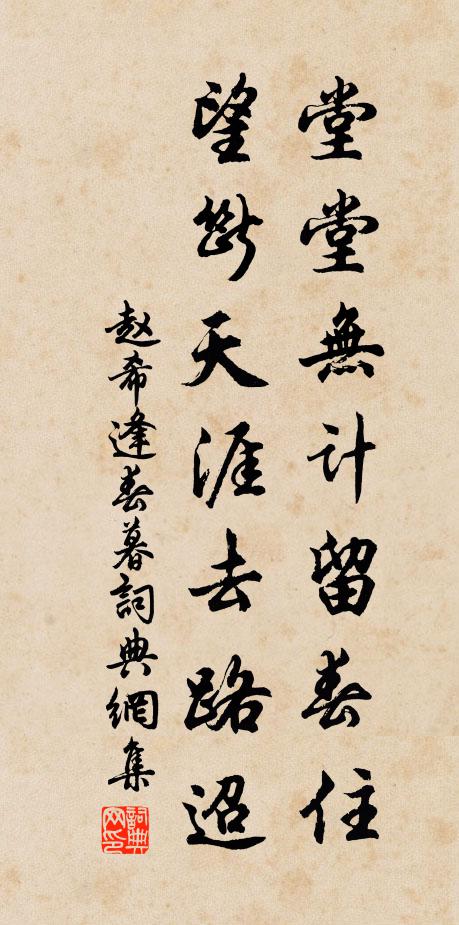 堂堂無計留春住
望斷天涯去路迢
赵希逢春暮詞典網集
詞典网印